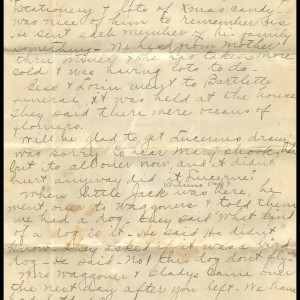 stationery & lots of Xmas candy
was nice of him to remember us
He sent each member of his family
something - We heard from Mother
thru Mildred & she has taken more
cold & was having lots to do.
Less & Lorin went to Bartletts
funeral & it was held at the house
they said there were oceans of
flowers.
Will be glad to get Lucernes drawing
was sorry to hear Mary shook her
but its all over now, and it didn't
hurt anyway did it Lucerne?
Where little Jack was here, he
went over to Waggoners & told them
we had a dog - they said What kind
of a dog is it - He said He didn't
know. They asked if it was a bird
dog - He said - No! this dog don't fly -
Mrs Waggoner & Gladys came over
the next day after you left. We have